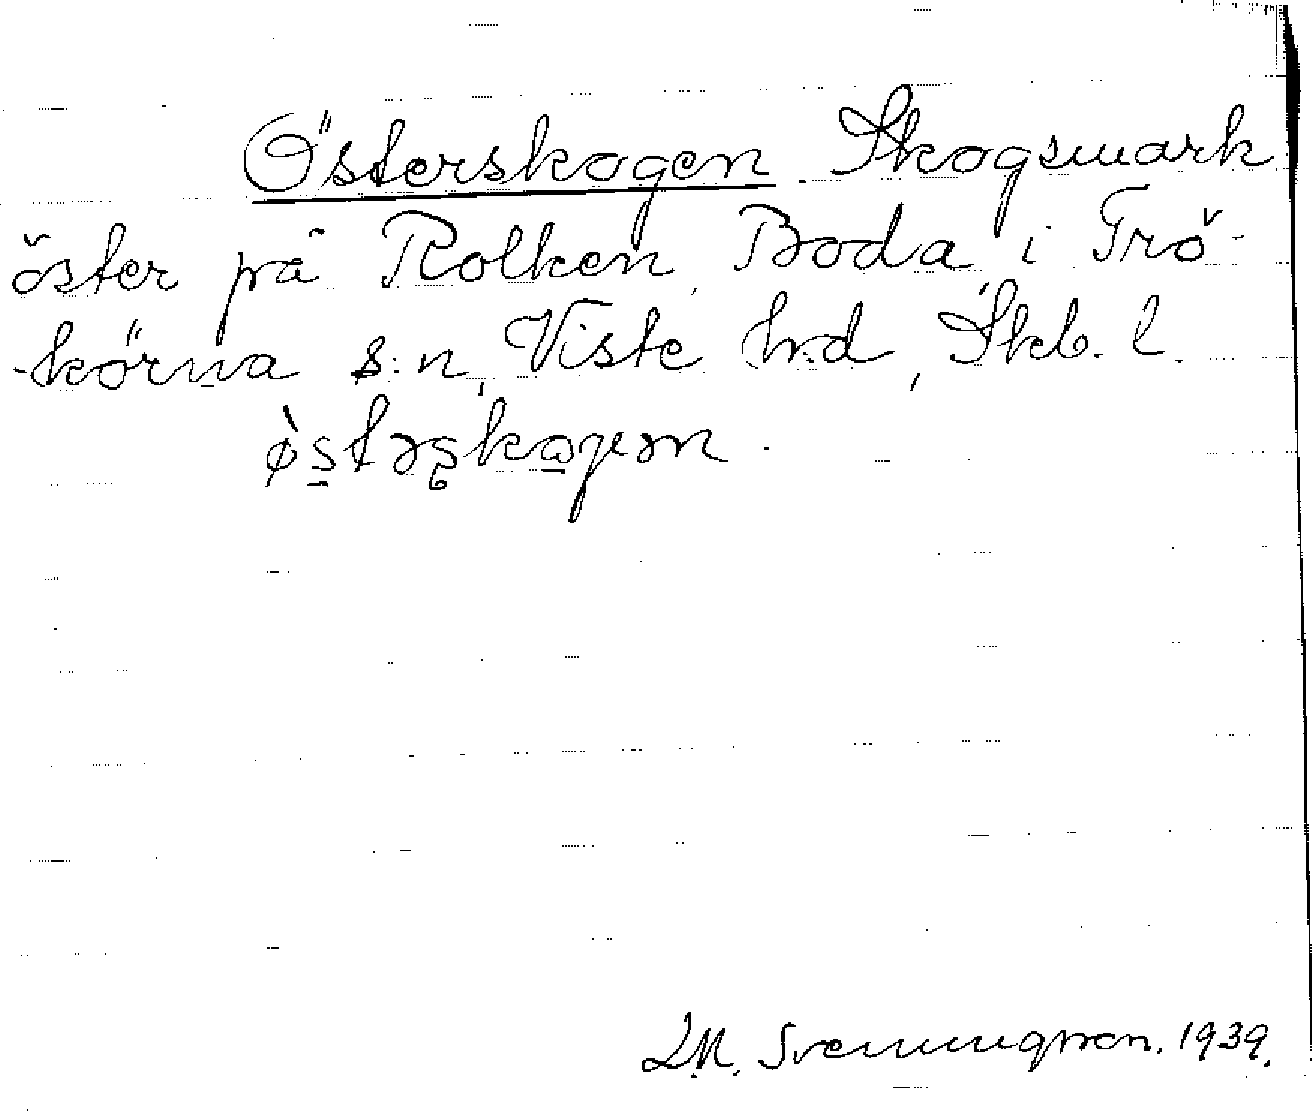 Österskogen Skogsmark
öster på Rolken, Boda, i Trö-
-körna s:n, Viste hrd, Skb. l.
ø̀stərskogən.
L.M. Svenungsson. 1939.